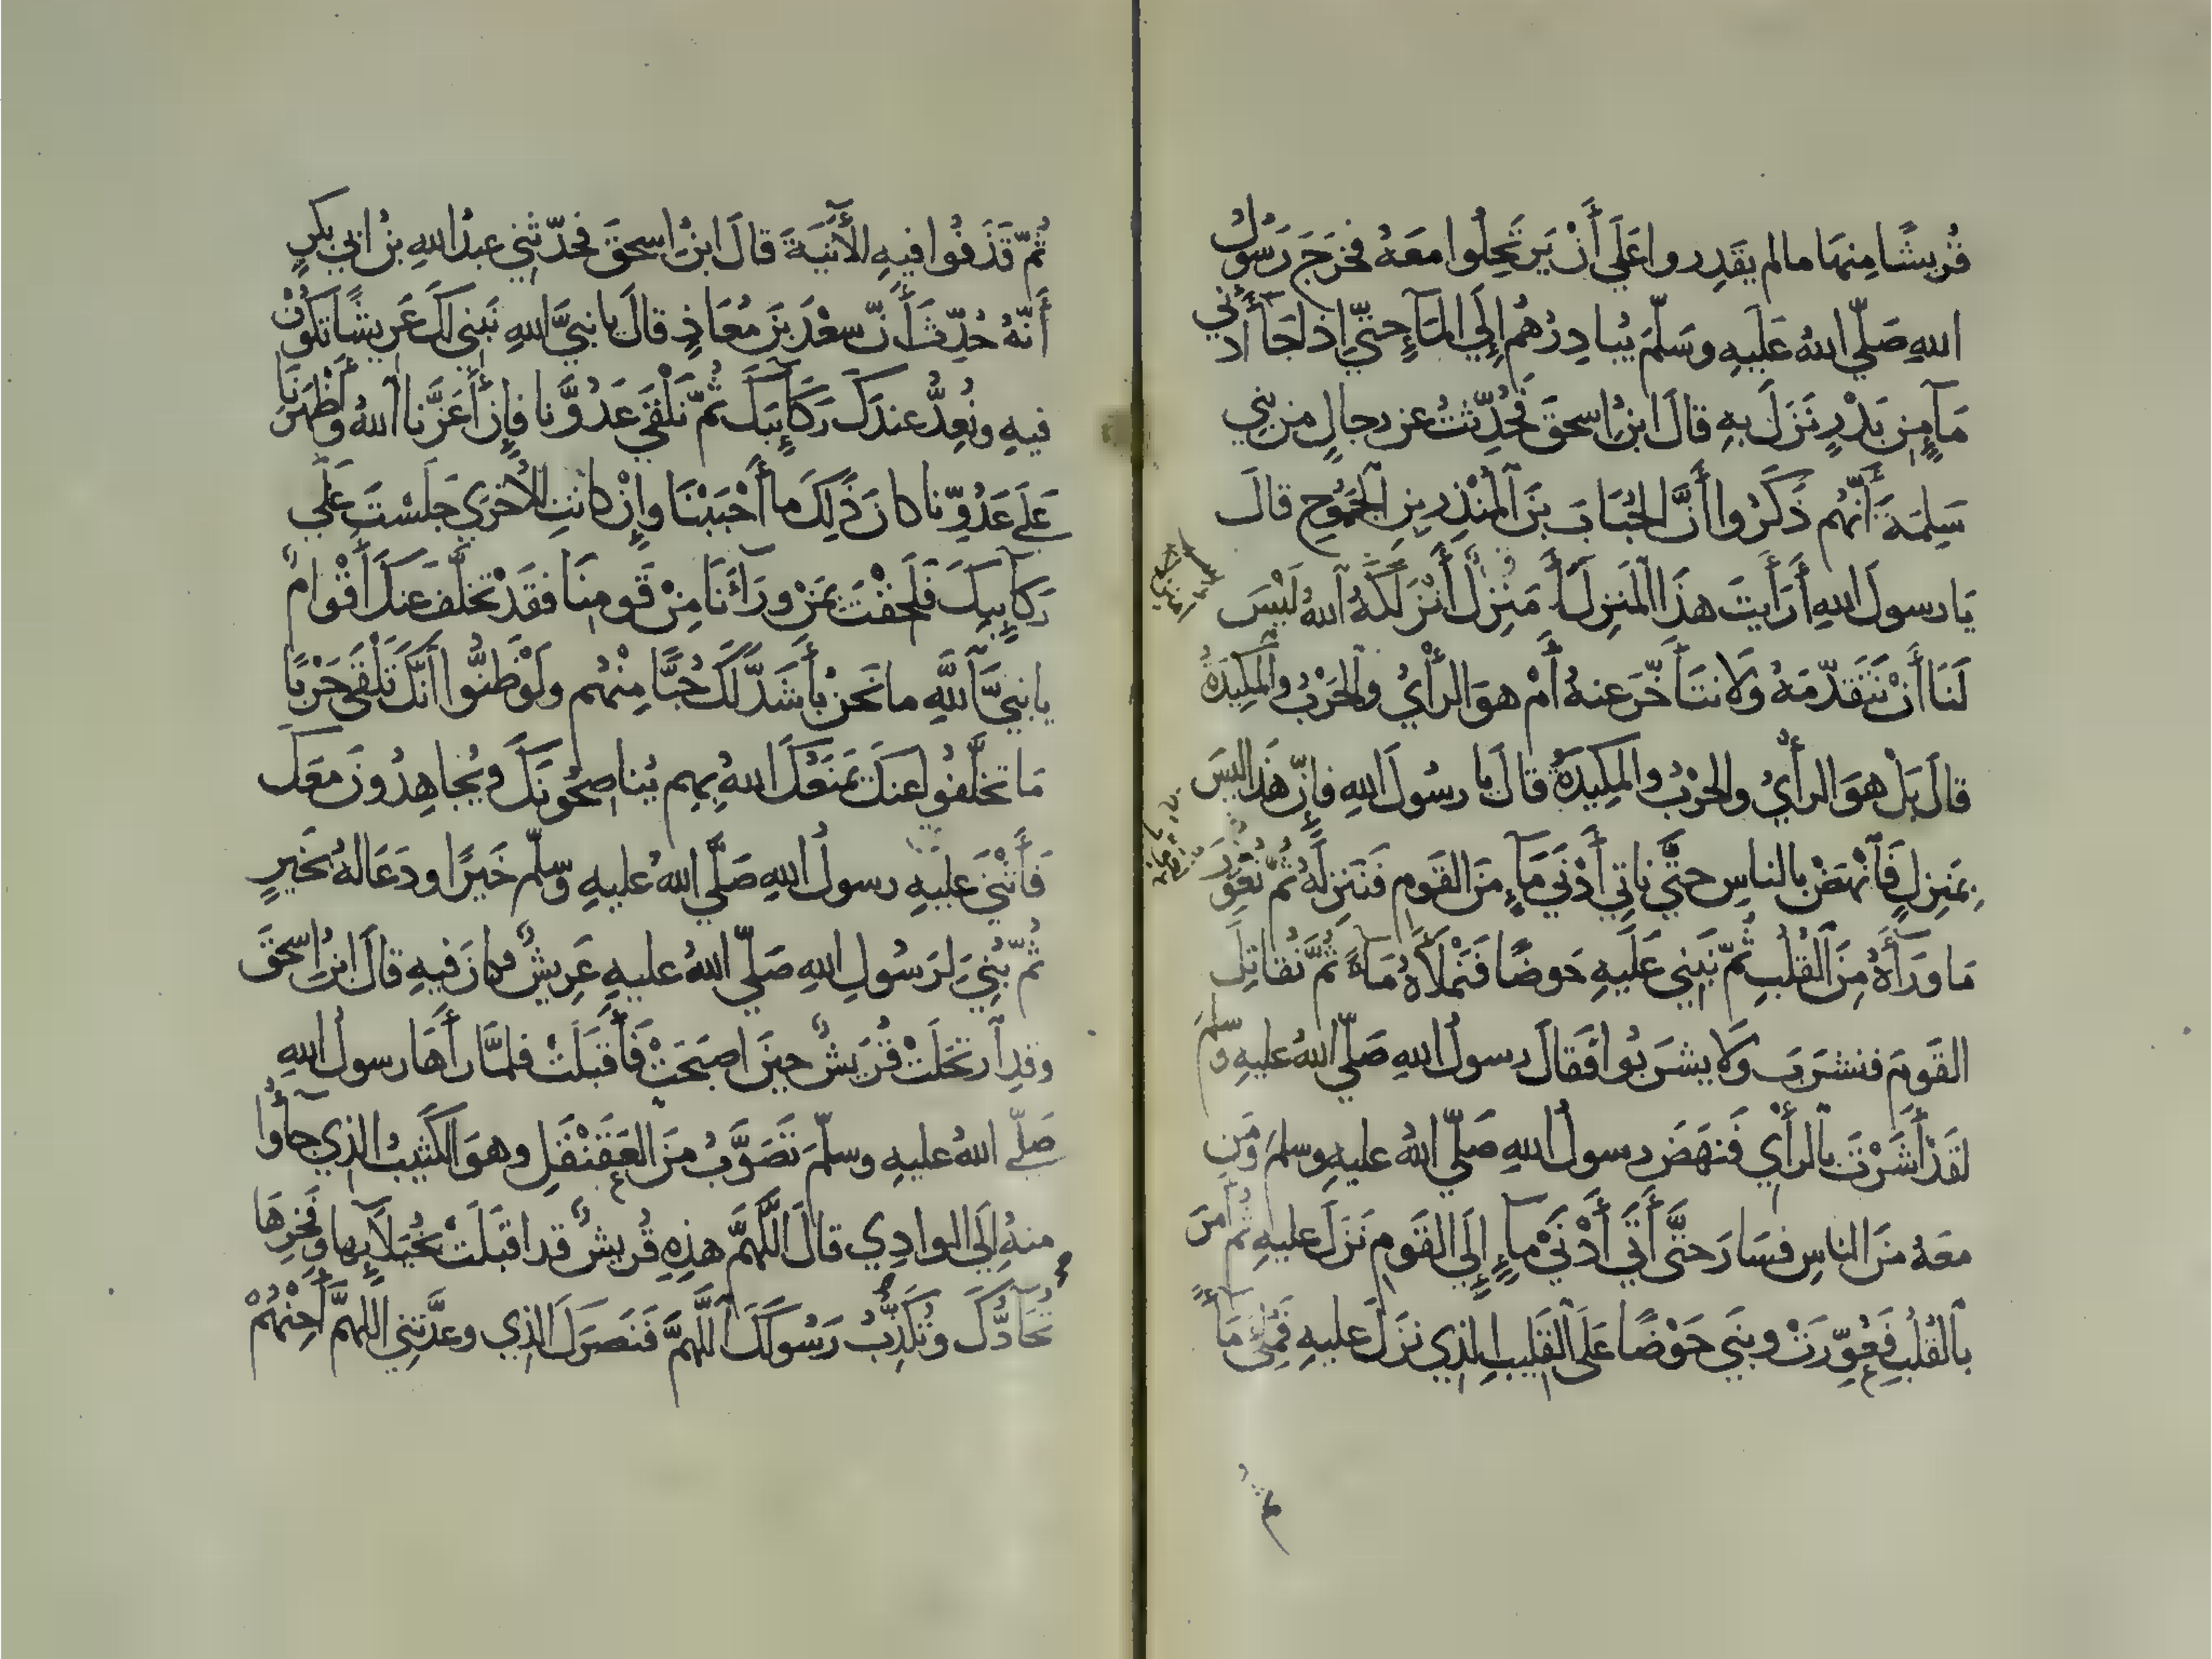 قُريشًا مِنهَا مالم يقَدِروا عَلَي أَنْ يَرتَحِلُوا معَهُ فخرَجَ رَسُولُ
اللهِ صَلّي اللهُ عَلَيهِ وسَلّمَ يُبادِرُهُم إِلَي المَآءِ حتيّ إِذا جَآ أَدنَي
مَآءٍ مِن بَدْرٍ نَزَلَ بهِ قالَ ابنُ اسحقَ فَحُدِّثتُ عن رجالٍ من بني
سَلِمَةَ أَنّهُم ذَكَرُوا أَنَّ الحُبَابَ بنَ المُنْذِرِ بنِ الجَمُوحِ قالَ
يَا رسولَ اللهِ أَرَأَيتَ هذَا المَنزِلَ أَمَنزِلٌ أَنْزَلَكَهُ اللهُ لَيْسَ
لَنَا أَنْ نَتَقَدّمَهُ وَلا نتَأَخّرَ عنهُ أَمْ هوَ الرأْيُ والحَرْبُ والمَكِيدَةُ
قالَ بَلْ هوَ الرأْيُ والحَرْبُ والمكِيدَةُ قالَ يا رسُولَ اللهِ فإِنّ هَذا ليسَ
بمَنزِلٍ فَأنْهَضْ بالناسِ حتَّي نأتِي أَدْنَي مَآءٍ مِنَ القَومِ فَنَنزِلَهُ ثُمّ نُغَوِّرَ
مَا ورَآءَهُ مِنَ القُلُبِ ثُمّ نَبنِي عَلَيهِ حَوضًا فَنَمْلَأهُ مَآءً ثُمَّ نُقاتِلَ
القَومَ فنشرَبَ وَلا يشرَبُوا فَقالَ رسولُ اللهِ صَلّي اللهُ عليهِ وسلمَ
لقَدْ أَشَرْتَ بالرأْيِ فَنهَضَ رسولُ اللهِ صَلّي اللهُ عليهِ وسلمَ وَمَن
معَهُ منَ الناسِ فسَارَ حتَّي أَتَي أَدْنَي مآءٍ إِلَي القَومِ نَزَلَ عليهِ ثمّ أَمَرَ
بالقُلُبِ فَعُوِّرَتْ وبنَي حَوْضًا عَلَي القَلِيبِ الذِي نزَلَ عليهِ فَمُلِئَ مَآءً
ثُمّ قَذَفُوا فيهِ الأَنِيَةَ قالَ ابنُ اسحقَ فحَدّثَنِي عبدُ اللهِ بنُ ابي بكرٍ
أَنّهُ حُدِّثَ أَنّ سعْدَ بنَ مُعَاذٍ قالَ يا نبيَّ اللهِ نَبنِي لَكَ عَرِيشًا تكُونُ
فيهِ ونُعِدُّ عندَكَ رَكآئِبَكَ ثُمّ نَلْقَي عَدُوَّنا فإِنْ أَعَزَّنا اللهُ وَأَظْهَرَنَا
عَلَي عَدُوِّنا كانَ ذَلِكَ ما أَحْبَبْنَا وإِنْ كانَتِ الأُخرَي جَلَسْتَ عَلَي
رَكآئِبِكَ فَلَحِقْتَ بمَنْ ورَآءَنَا مِنْ قَومِنَا فقَدْ تخَلَّفَ عنكَ أَقْوامٌ
يا نبيَّ اللَّهِ ما نَحنُ بأَشَدَّ لَكَ حُبًّا مِنْهُم ولَوْ ظَنُّوا أَنّكَ تَلْقَي حَرْبًا
مَا تخَلَّفُوا عنكَ يَمنَعُكَ اللهُ بِهِم يُناصِحُونَكَ ويُجاهِدُونَ معَكَ
فَأَثنَي عَليهِ رسولُ اللهِ صَلَّي اللهُ عليهِ وسّلمَ خَيرًا ودَعَا لهُ بخَيرٍ
ثُمّ بُنِيَ لرَسُولِ اللهِ صَلّي اللهُ عليهِ عَرِيشٌ فكانَ فيهِ قالَ ابنُ اسحَقَ
وقدِ ارتَحَلَتْ قُرَيشٌ حِينَ اصبَحَتْ فَأَقبَلَتْ فلمَّا رأَهَا رسولُ اللهِ
صَلّي اللهُ عليهِ وسلّمَ تَصَوَّبُ مِنَ العَقَنْقَلِ وهوَ الكَثِيبُ الذِي جآءُوا
منهُ إِلَي الوادِي قالَ اللَّهُمَّ هذِهِ قُريشٌ قد اقبَلَتْ بخُيَلآئِها وفَخْرِهَا
تُحَآدُّكَ وتُكَذِّبُ رَسُولَكَ اللَّهُمَّ فَنَصرَكَ الذِي وعدَّتنِي اللهمَّ أَحِنْهُمُ